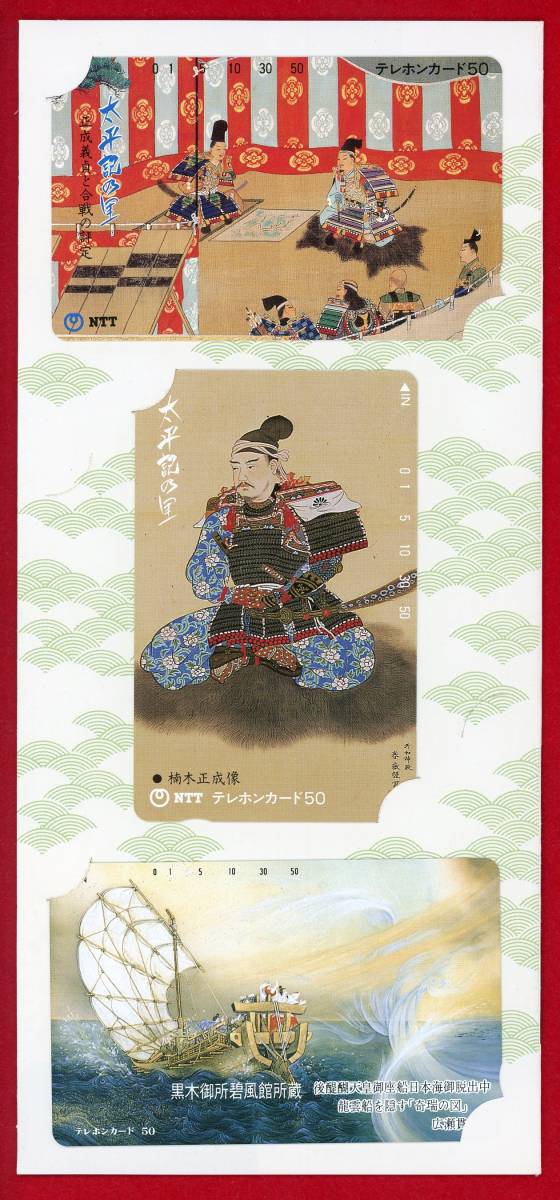 0 1 5 10 30 50 テレホンカード50
太平記の里
正成義貞と合戦の評定
NTT
太平記の里
IN
0 1 5 10 30 50
● 楠木正成像
NTT テレホンカード50
0 1 5 10 30 50
黒木御所碧風館所蔵
後醍醐天皇御座船日本海御脱出中
龍雲船を隠す「奇瑞の図」
広瀬貫
テレホンカード 50